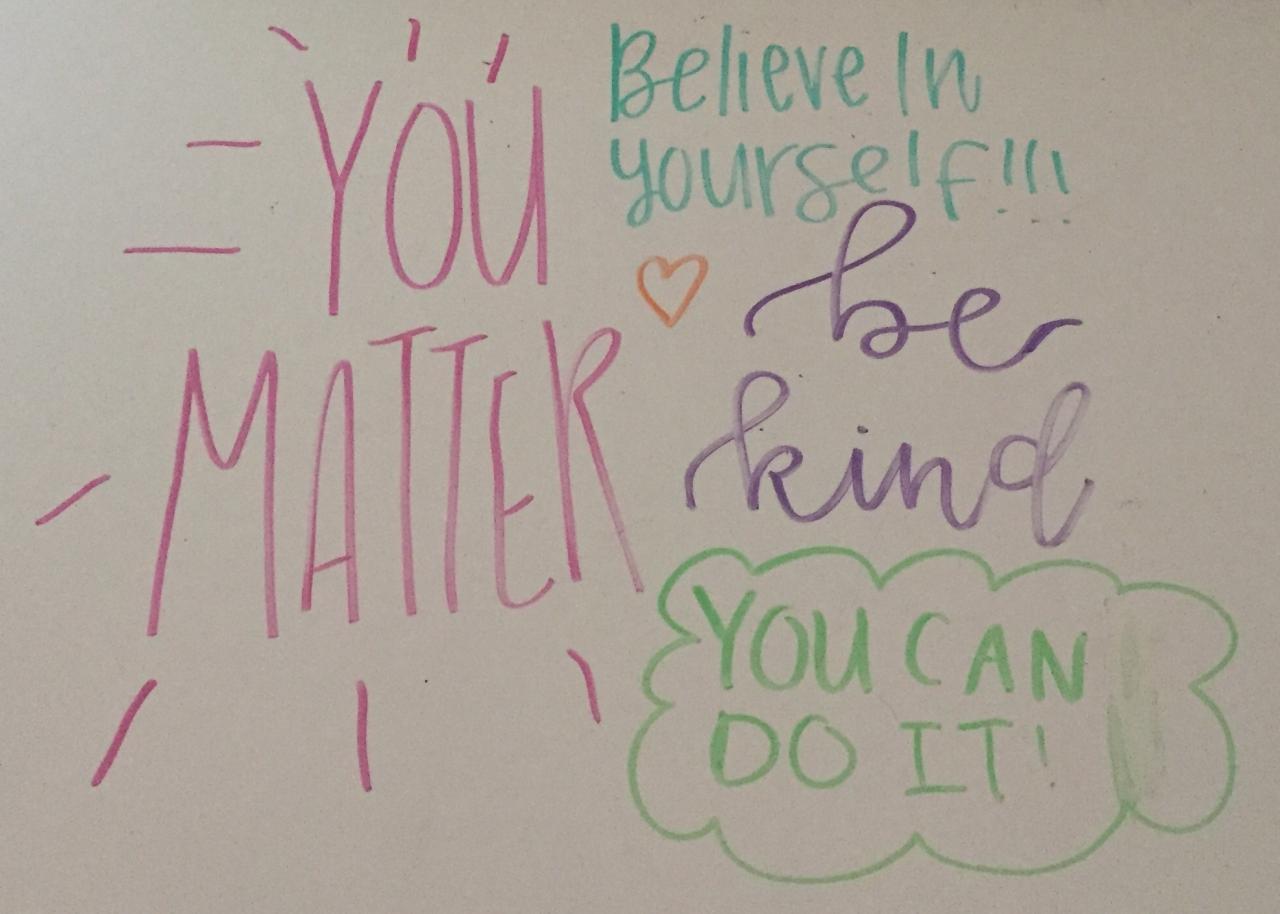 YOU
MATTER
Believe In
yourself!!!
be
kind
YOU CAN
DO IT!